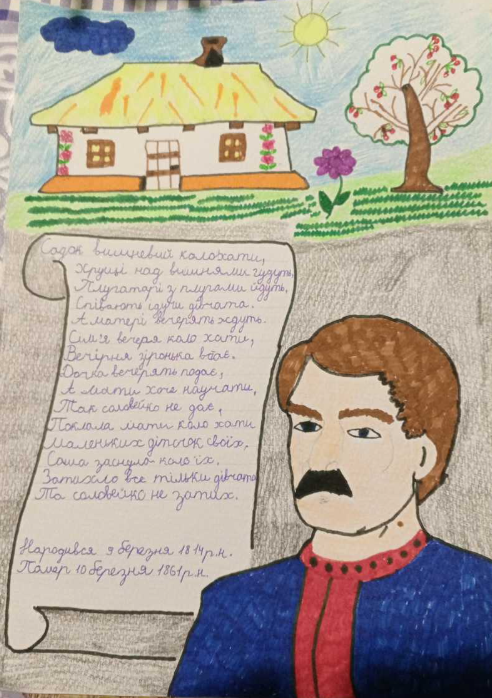 Садок вишневий коло хати,
Хрущі над вишнями гудуть,
Плугатарі з плугами йдуть,
Співають ідучи дівчата.
А матері вечерять ждуть.
Сім'я вечеря коло хати,
Вечірня зіронька встає.
Дочка вечерять подає,
А мати хоче научати,
Так соловейко не дає,
Поклала мати коло хати
Маленьких діточок своїх,
Сама заснула коло їх.
Затихло все тільки дівчата
Та соловейко не затих.
Народився 9 березня 1814 р.н.
Помер 10 березня 1861 р.н.